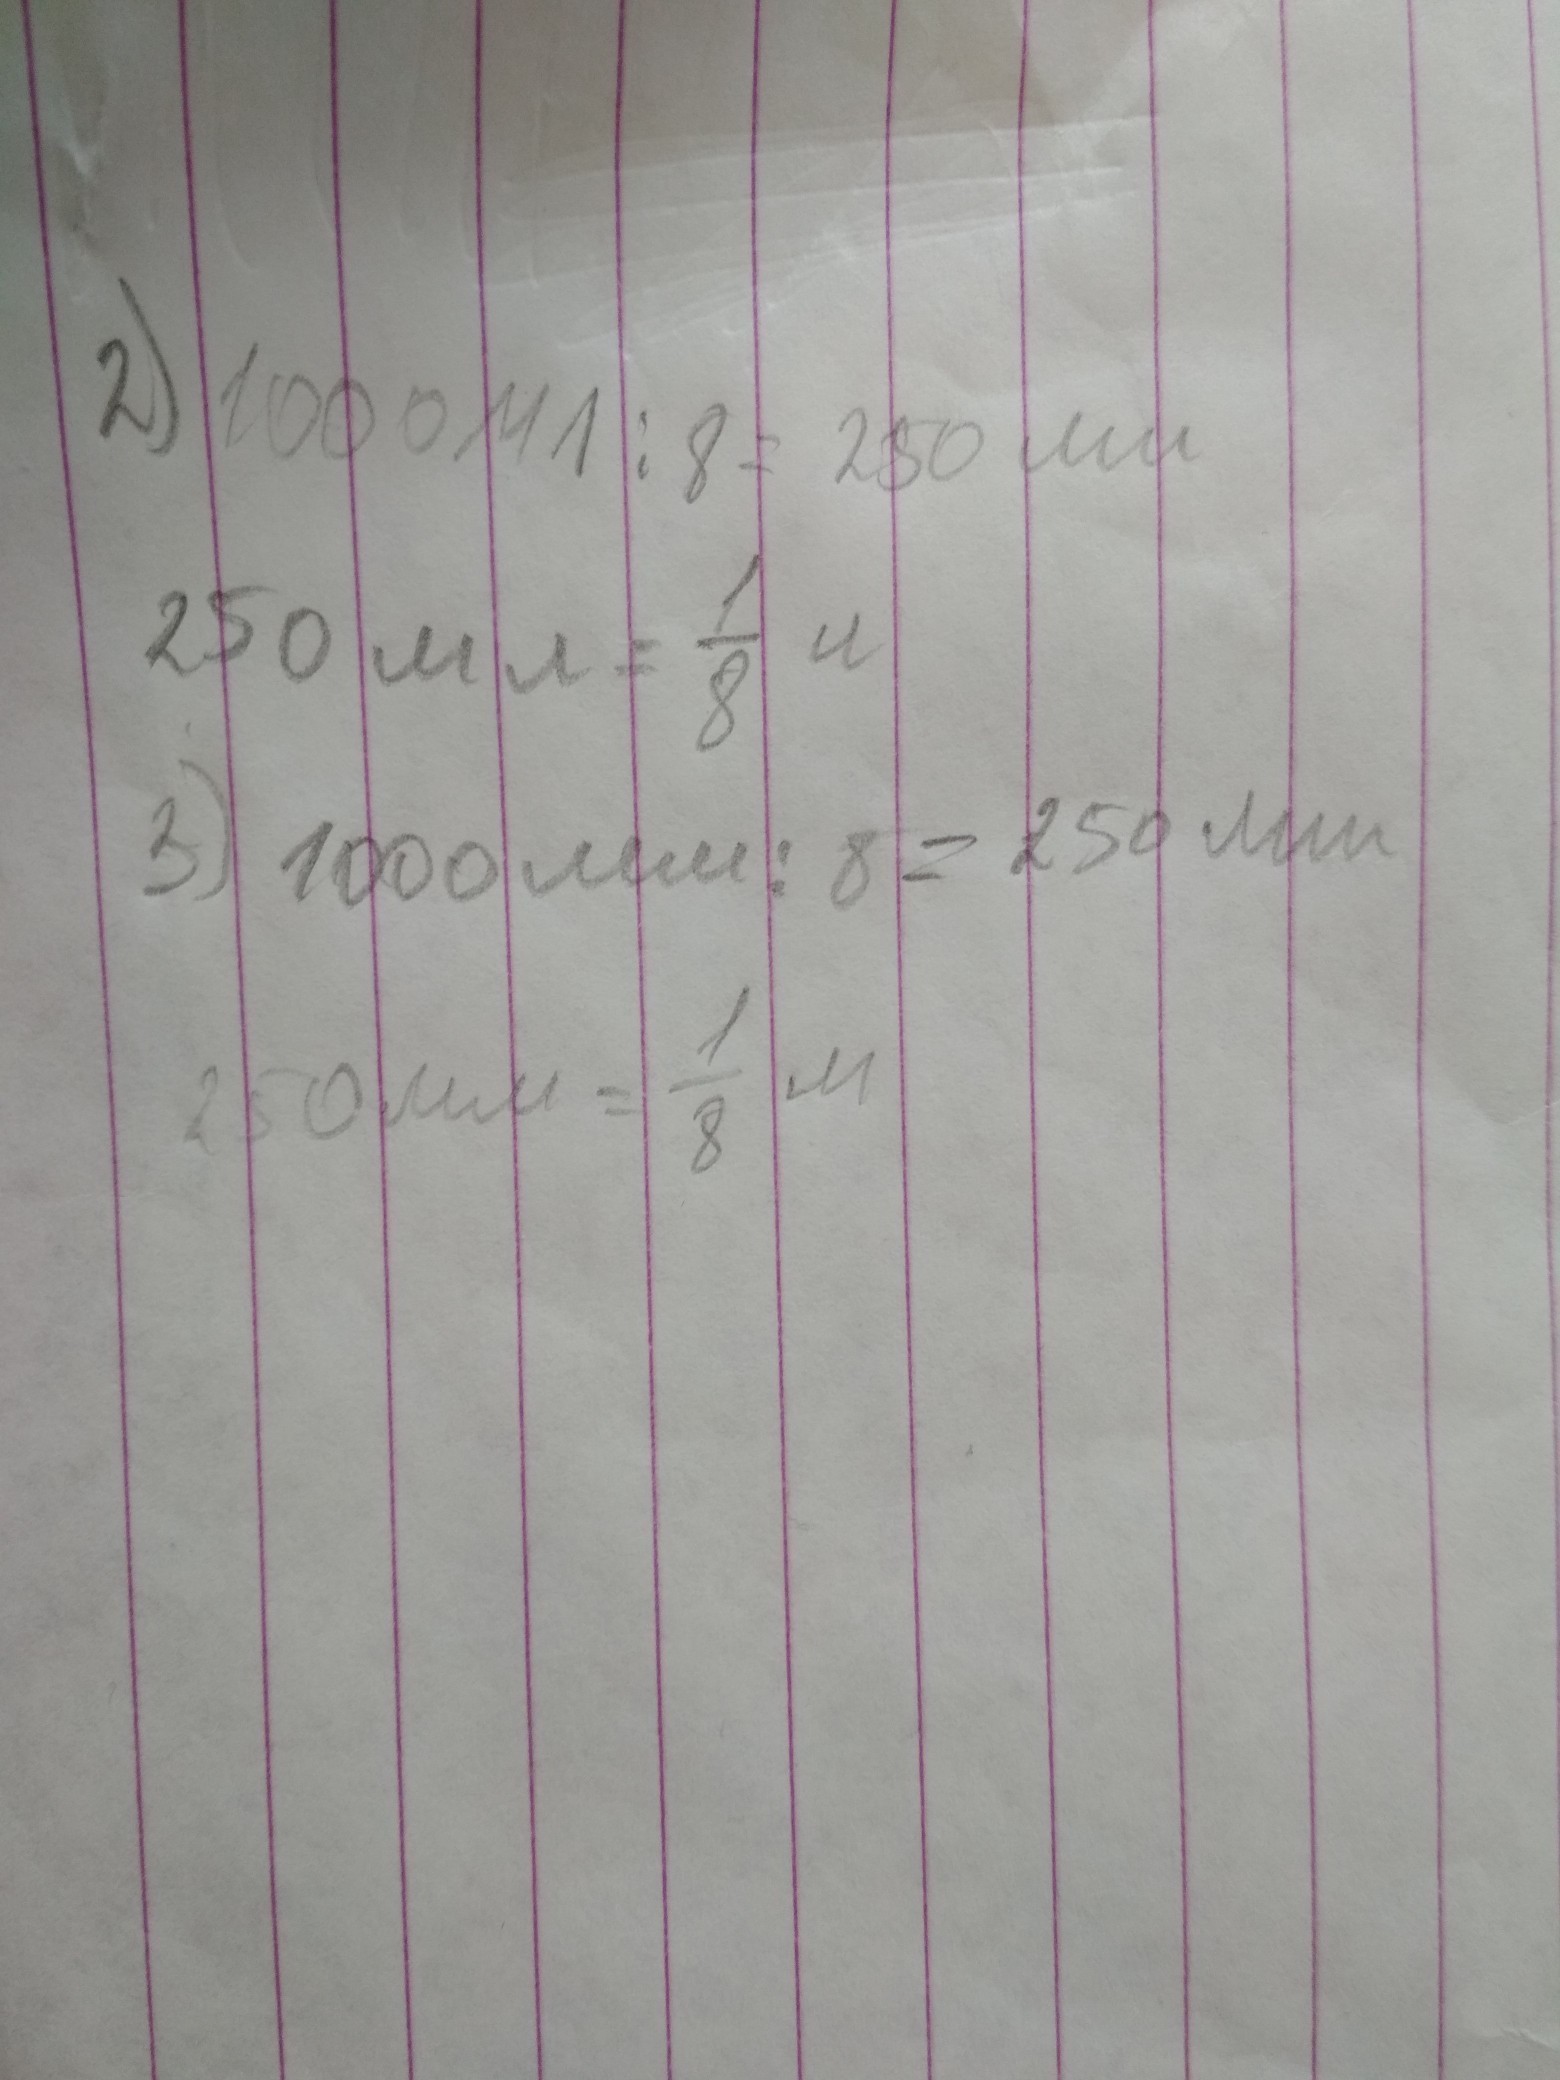 2) 1000 мл : 8 = 250 мл
250 мл = 1/8 л
3) 1000 мм : 8 = 250 мм
250 мм = 1/8 м